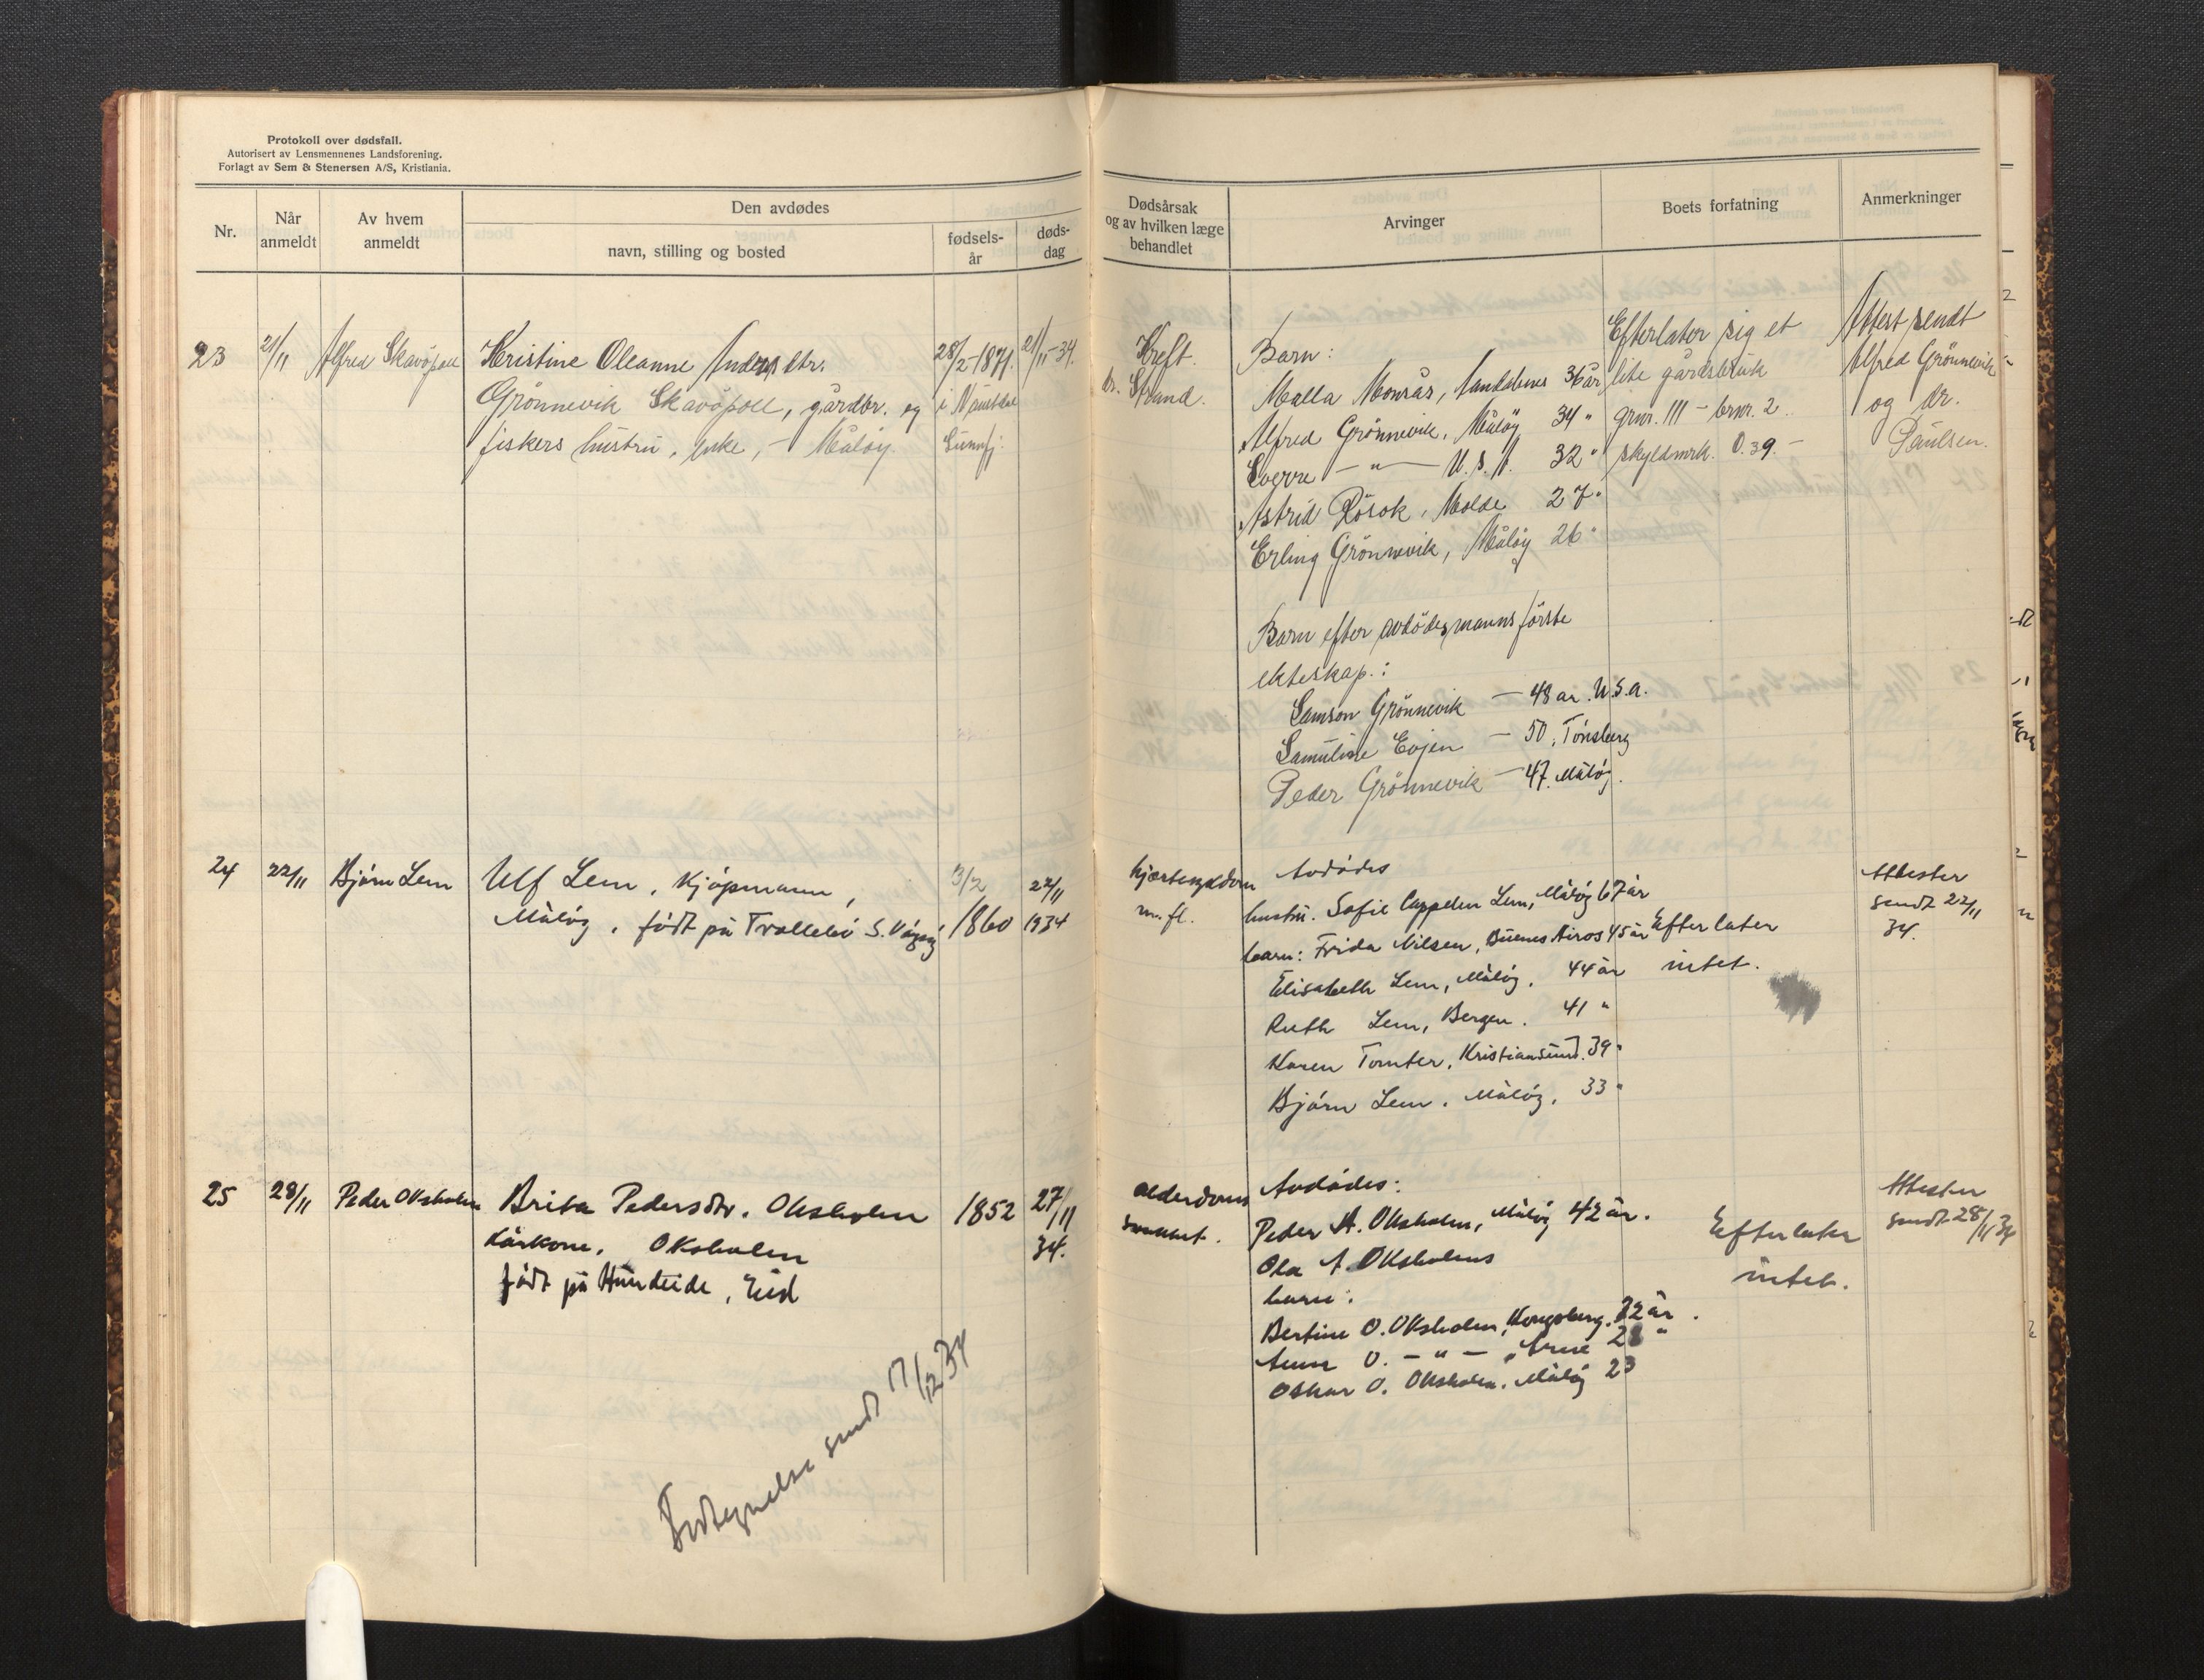 Protokoll over dødsfall.
Autorisert av Lensmennenes Landsforening.
Forlagt av Sem & Stenersen A/S, Kristiania.
Nr.
Når
anmeldt
Av hvem
anmeldt
Den avdødes
navn, stilling og bosted
fødsels-
år
døds-
dag
23 21/11 Alfred Skavöpoll Kristine Oleanne Andersdtr. 28/2-1871. 21/11-34.
Grönnevik Skavöpoll, gårdbr. og i Naustdal
fiskers hustru, enke, - Måløy. Sunnfj.
24 22/11 Bjørn Lem Ulf Lem, Kjøpmann, 3/2 22/11
Måløy, født på Trollebø S. Vågsøy 1860 1934
25 28/11 Peder Oksholm Brita Pedersdtr. Oksholen 1852 27/11
Kårkone, Oksholen 34.
født på Hundeide, Eid
sendt 17/12 34
Dødsårsak
og av hvilken læge
behandlet
Arvinger
Boets forfatning
Anmerkninger
Kreft.
dr. Strand.
Barn:
Malla Monsås, Aandalsnes 36 år
Alfred Grönnevik, Måløy 34 "
Sverre — " — U.S.A. 32 "
Astrid Rösok, Molde 27 "
Erling Grönnevik, Måløy 26 "
Barn efter avdødes manns förste
ekteskap.:
Samson Grönnevik — 48 år. U.S.A.
Samuline Evjen — 50, Tönsberg
Peder Grönnevik — 47. Måløy.
Efterlater sig et
lite gårdsbruk
grnr. 111 - brnr. 2.
skyldmrk. 0.39.-
Attest sendt
Alfred Grönnevik
og dr.
Paulsen.
hjertesykdom
m. fl.
Avdødes
hustru. Sofie Cappelen Lem, Måløy 67 år
barn: Frida Nilsen, Buenos Airos 45 år
Elisabeth Lem, Måløy. 44 år
Ruth Lem, Bergen. 41 "
Karen Tomter, Kristiansund. 39 "
Bjørn Lem. Måløy. 33 "
Efterlater
intet.
Attester
sendt 22/11
34.
alderdoms
svakhet.
Avdødes:
Peder A. Oksholen, Måløy 42 år.
Ola A. Oksholens
barn:
Bertine O. Oksholen, Kongsberg. 32 år.
Anna O. — " — 28 "
Oskar O. Oksholen. Måløy 23
Efterlater
intet.
Attester
sendt 28/11 34